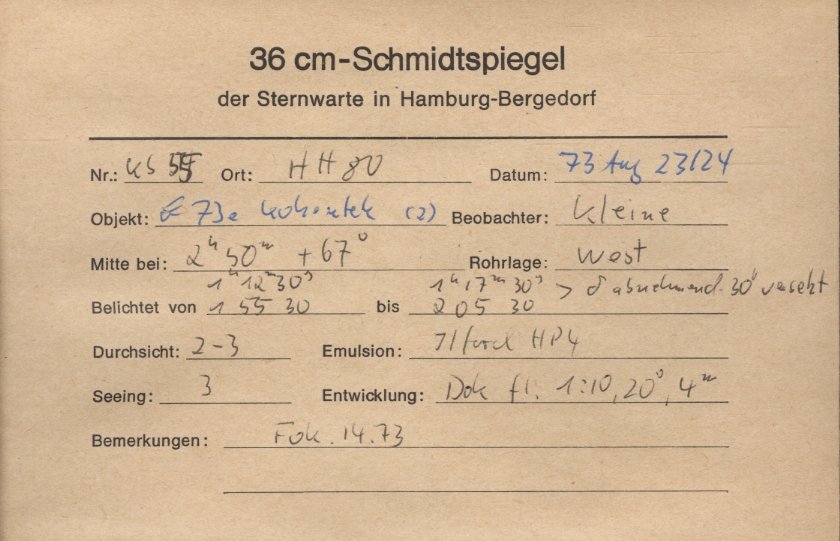 36 cm-Schmidtspiegel
der Sternwarte in Hamburg-Bergedorf
Nr.: KS 55 Ort: HH 80 Datum: 73 Aug 23/24
Objekt: 73e Kohoutek (2) Beobachter: Kleine
Mitte bei: 2h 50m +67° Rohrlage: West
1h 12m 30s 1h 17m 30s > δ abnehmend 30" versetzt
Belichtet von 1 55 30 bis 2 05 30
Durchsicht: 2-3 Emulsion: Ilford HP4
Seeing: 3 Entwicklung: Dok fl. 1:10, 20°, 4m
Bemerkungen: Fok. 14.73